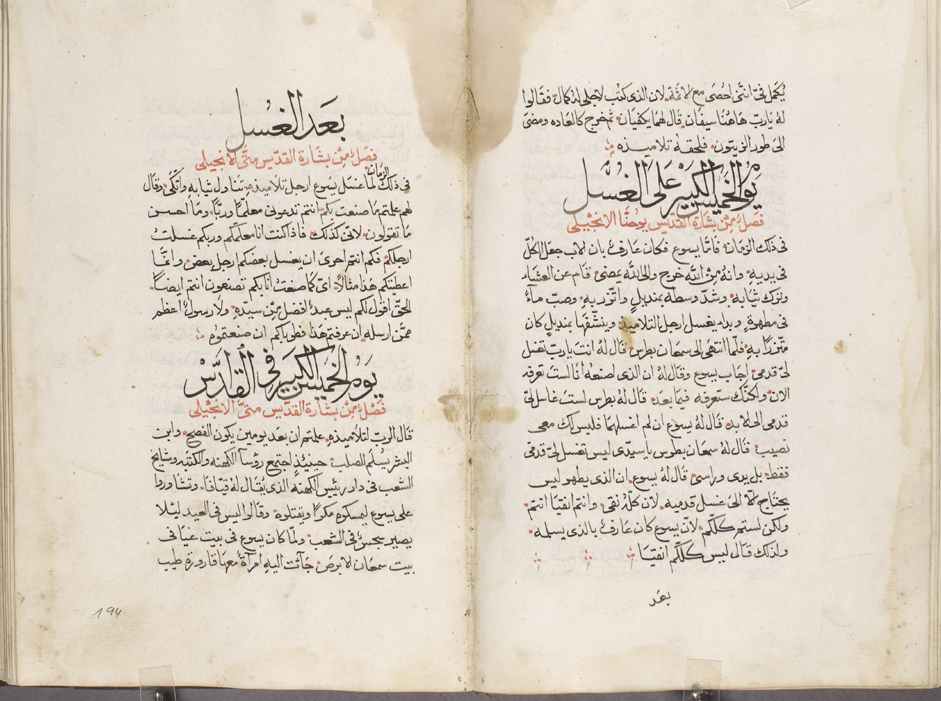 يكمل فيّ انني احصى مع الاثمة لان الذي كتب لاجلي له كمال فقالوا
له يا رب هاهنا سيفان قال لهما يكفيان ثم خرج كالعاده ومضى
الى طور الزيتون فلحقه تلاميذه
يوم الخميس الكبير على الغسل
فصل من بشارة القديس يوحنا الانجيلي
في ذلك الزمان فامّا يسوع فكان عارف بان الاب جعل الكل
في يديه وانه من الله خرج والى الله يمضي قام عن العشاء
وترك ثيابه وشدّ وسطه بمنديل واتزر به وصب ماءً
في مطهرة وبدا يغسل ارجل التلاميذ وينشفها بمنديل كان
متزرًا به فلما انتهى الى سمعان بطرس قال له انت يا رب تغسل
لي قدمي اجاب يسوع وقال له ان الذي اصنعه انا لست تعرفه
الان ولكنك ستعرفه فيما بعد قال له بطرس لست غاسل لي
قدمي الى الابد قال له يسوع ان لم اغسلهما فليس لك معي
نصيب قال له سمعان بطرس يا سيدي ليس تغسل لي قدمي
فقط بل يدي وراسي قال له يسوع ان الذي يطهر ليس
يحتاج الا الى غسل قدميه لان كله نقي وانتم انقيا انتم
ولكن لستم كلكم لان يسوع كان عارف بالذي يسلمه
ولذلك قال ليس كلكم انقيا
بعد
بعد الغسل
فصل من بشارة القديس متى الانجيلي
في ذلك الزمان لما غسل يسوع ارجل تلاميذه تناول ثيابه واتكى وقال
لهم علمتم ما صنعت بكم انتم تدعوني معلمًا وربًا وما احسن
ما تقولون لانّي كذلك فاذا كنت انا معلمكم وربكم غسلت
ارجلكم فكم انتم احرى ان يغسل بعضكم ارجل بعض وانما
اعطيتكم هذا مثالًا اي كما صنعت انا بكم تصنعون انتم ايضًا
الحق اقول لكم ليس عبد افضل من سيده ولا رسول اعظم
ممن ارسله ان عرفتم هذا فطوباكم ان صنعتموه
يوم الخميس الكبير في القداس
فصل من بشارة القديس متى الانجيلي
قال الرب لتلاميذه علمتم ان بعد يومين يكون الفصح وابن
البشر يسلم للصلب حينئذٍ اجتمع رؤسا الكهنه والكتبه ومشايخ
الشعب في دار رئيس الكهنه الذي يقال له قيافا وتشاوروا
على يسوع ليمسكوه مكرًا ويقتلوه وقالوا ليس في العيد ليلا
يصير سجس في الشعب ولما كان يسوع في بيت عنيا في
بيت سمعان الابرص جآت اليه امرأة معها قارورة طيب
194